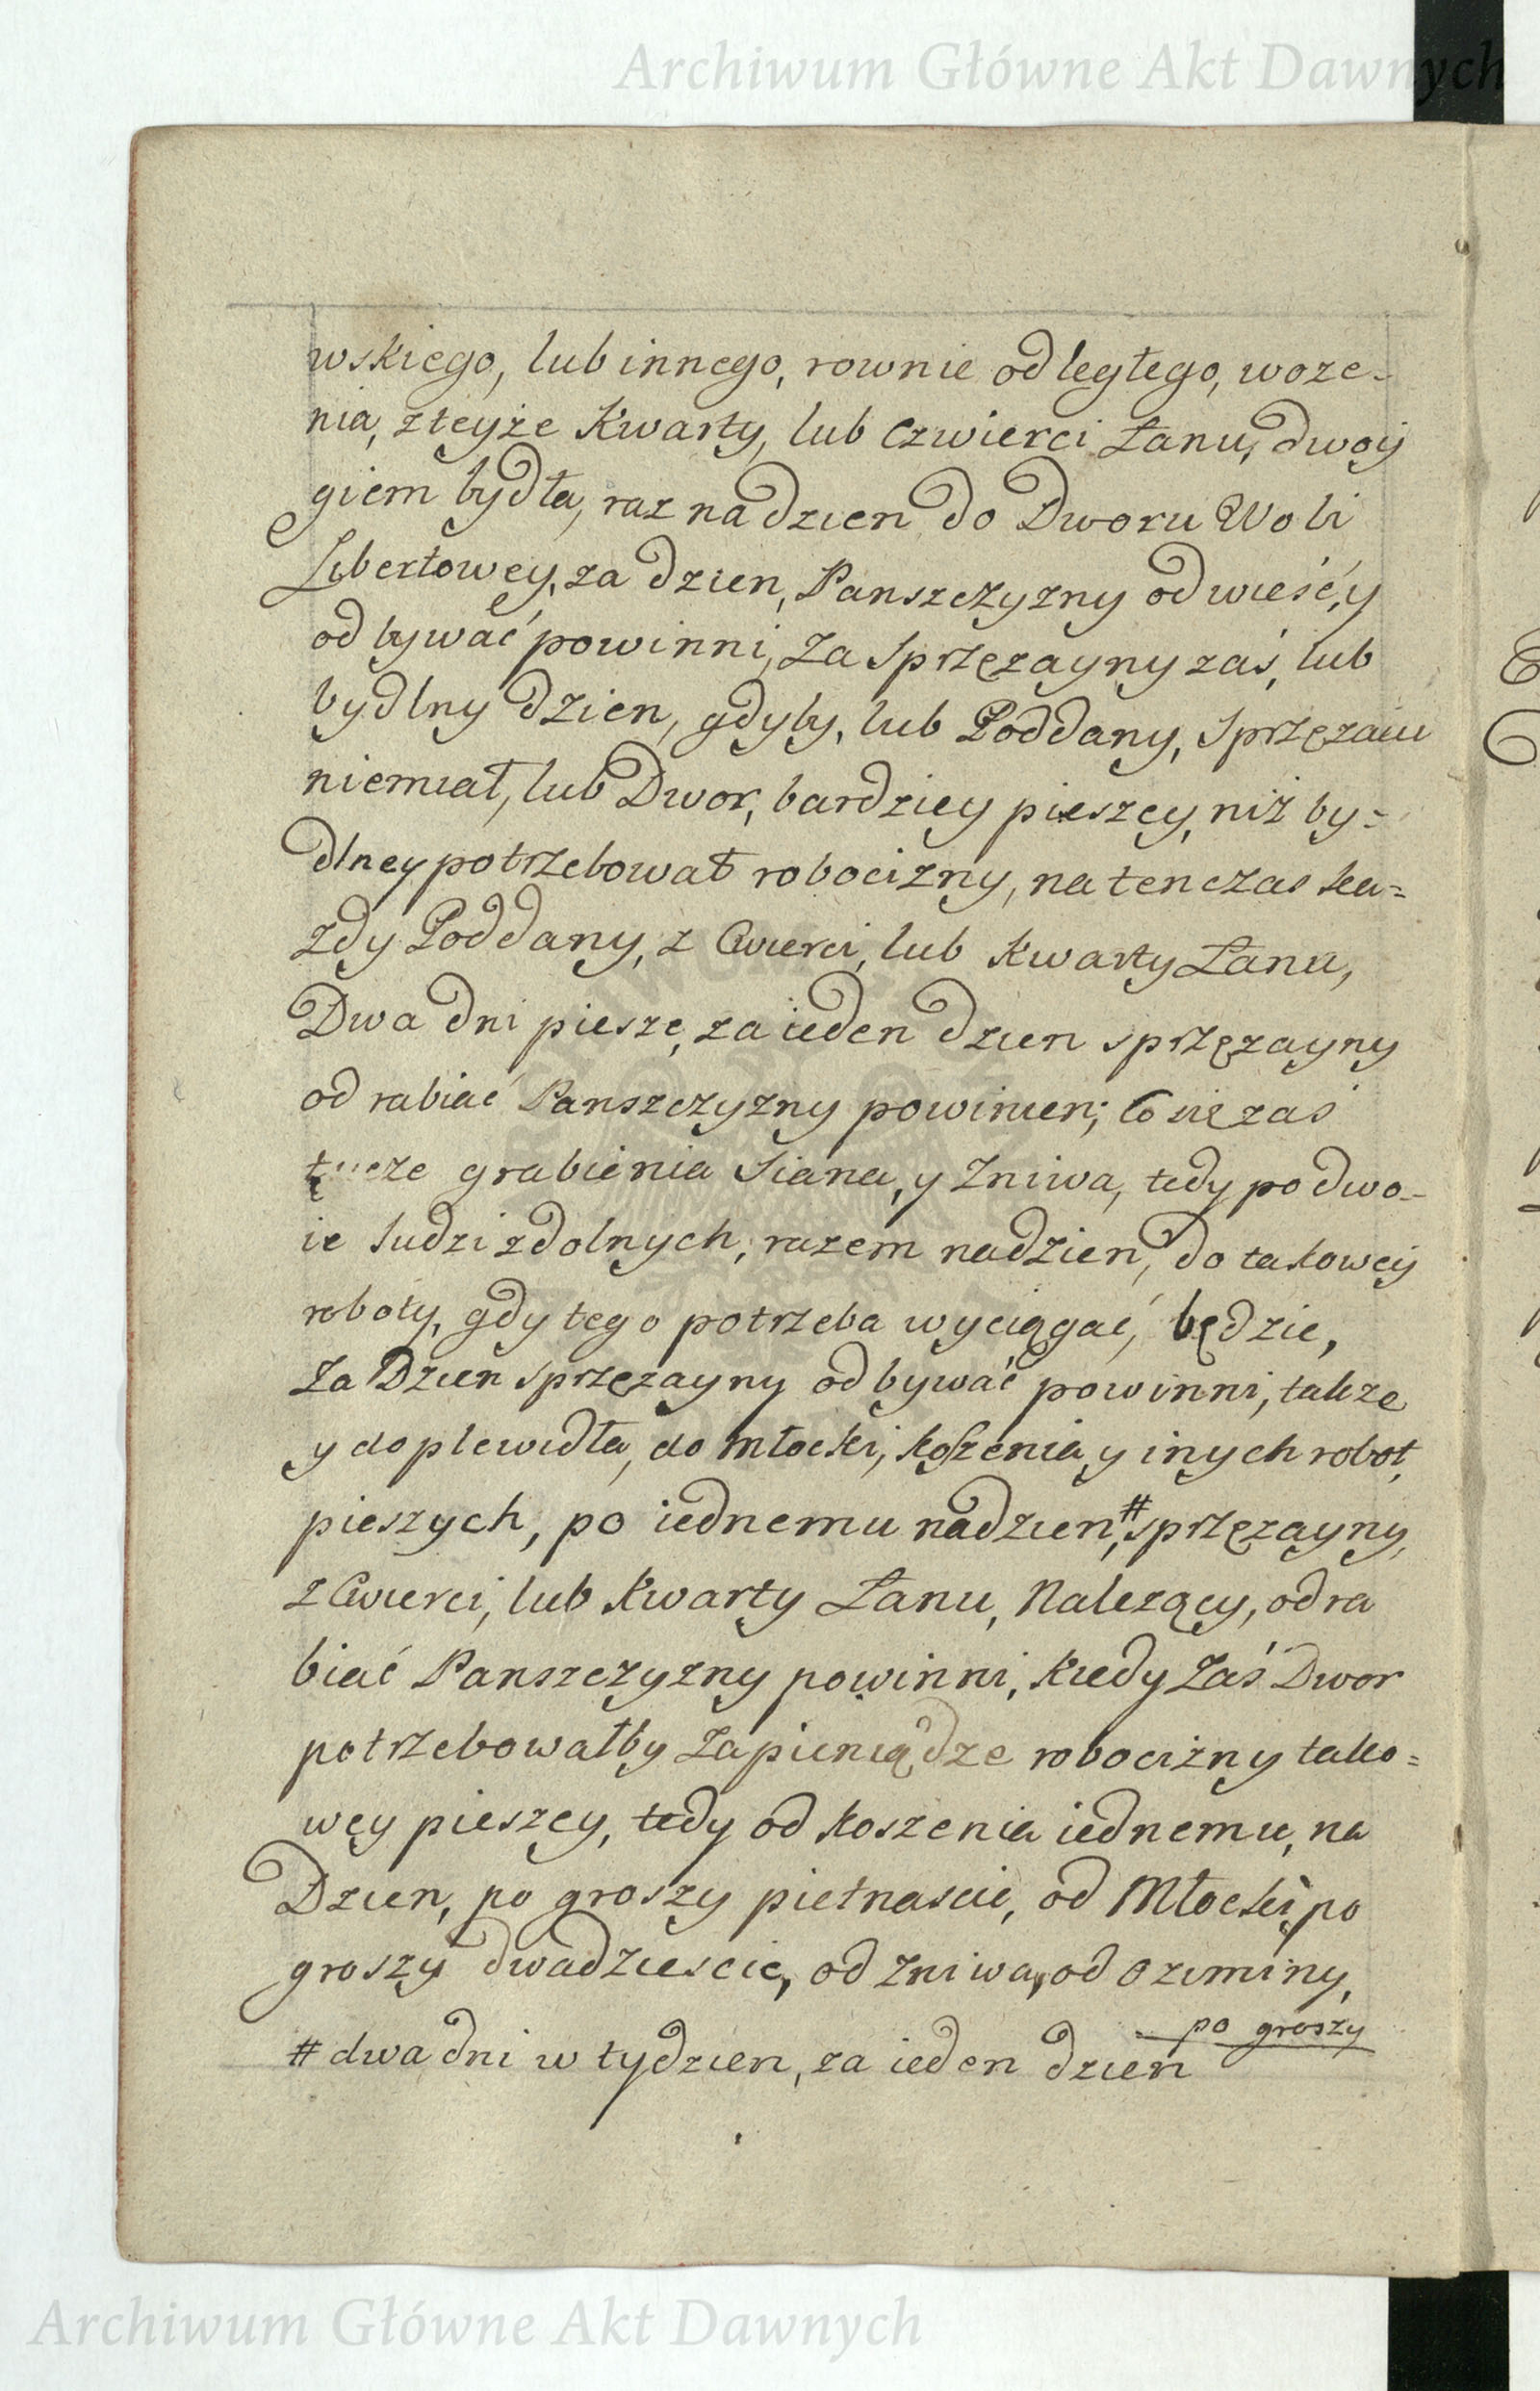 Archiwum Główne Akt Dawnych
wskiego, lub innego, rownie odległego, woze-
nia, z teyże Kwarty, lub Czwierci Łanu, dwoy
giem bydła, raz na dzien do Dworu Woli
Libertowey, za dzien, Panszczyzny odwieść, y
odbywać powinni, Za Sprzęzayny zaś, lub
bydlny dzien, gdyby, lub Poddany, Sprzęzaiu
niemiał, lub Dwor, bardziey pieszey, niż by=
dlney potrzebował robocizny, natenczas ka=
zdy Poddany, z Cwierci, lub Kwarty Łanu,
Dwa dni piesze, za ieden dzien sprzęzayny
odrabiać Panszczyzny powinien; Co się zaś
grabienia Siana, y Zniwa, tedy po dwo-
ie ludzi zdolnych, razem nadzien, do takowey
roboty, gdy tego potrzeba wyciągać, będzie,
Za Dzien sprzęzayny odbywać powinni, takze
y do plewidła, do młocki, koszenia y inych robot,
pieszych, po iednemu nadzien,# sprzęzayny,
z Cwierci, lub Kwarty Łanu, Nalezący, odra
biać Panszczyzny powinni, Kiedy Zaś Dwor
potrzebowałby Zapieniądze robocizny tako=
wey pieszey, tedy od koszenia iednemu, na
Dzien, po groszy pietnascie, od Młocki, po
groszy dwadziescie, od Zniwa, od Oziminy,
po groszy
# dwa dni w tydzien, za ieden dzien
Archiwum Główne Akt Dawnych